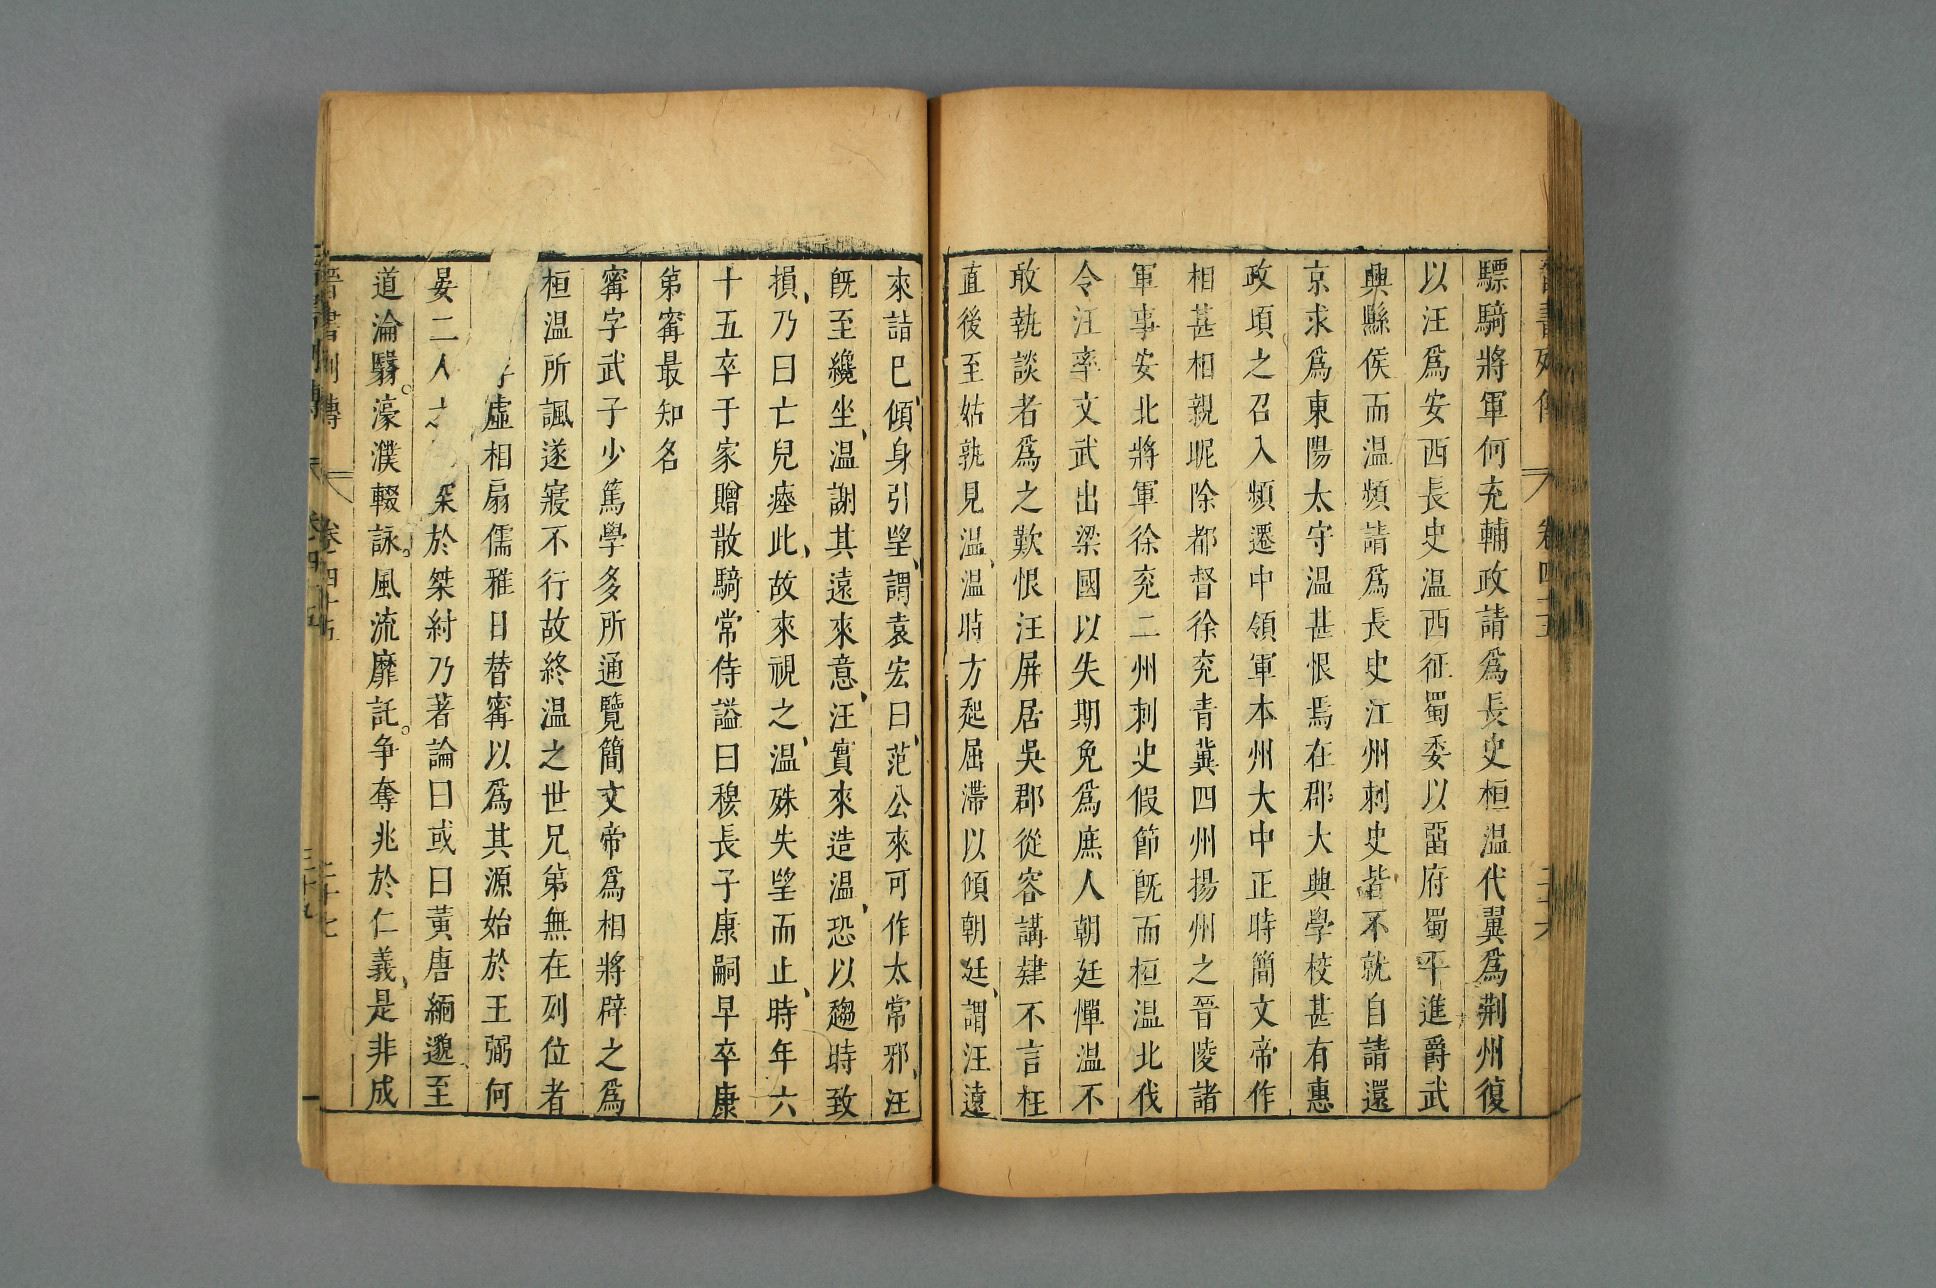 晉書列傳 卷四十五 二十六
驃騎將軍何充輔政請爲長史桓温代翼爲荆州復
以汪爲安西長史温西征蜀委以畱府蜀平進爵武
興縣侯而温頻請爲長史江州刺史皆不就自請還
京求爲東陽太守温甚恨焉在郡大興學校甚有惠
政頃之召入頻遷中領軍本州大中正時簡文帝作
相甚相親昵除都督徐兖青冀四州揚州之晉陵諸
軍事安北將軍徐兖二州刺史假節旣而桓温北伐
令汪率文武出梁國以失期免爲庶人朝廷憚温不
敢執談者爲之歎恨汪屏居吳郡從容講肄不言枉
直後至姑孰見温、温時方起屈滯以傾朝廷、謂汪遠
來詣巳、傾身引望、謂袁宏曰、范公來可作太常邪、汪
旣至纔坐、温謝其遠來意、汪實來造温、恐以趨時致
損、乃曰亡兒瘞此、故來視之、温殊失望而止、時年六
十五卒于家贈散騎常侍謚曰穆長子康嗣早卒康
第甯最知名
甯字武子少篤學多所通覽簡文帝爲相將辟之爲
桓温所諷遂寢不行故終温之世兄第無在列位者
浮虛相扇儒雅日替甯以爲其源始於王弼何
晏二人之深於桀紂乃著論曰或曰黃唐緬邈至
道淪翳。濠濮輟詠。風流靡託。争奪兆於仁義、是非成
晉書列傳 卷四十五 二十七